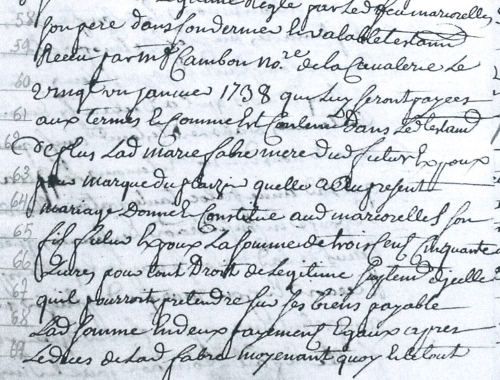 Legitime Reglé par Led feu mariorelles
58
son pere dans son dernier & valable testamt
59
Receu par me Cambon nore de la Cavalerie Le
60
vingt un janvier 1738 qui Luy seront payees
61
aux termes & Comme est Contenu dans Led testamt
62
De plus Lad marie fabre mere dud futur Expoux
63
pour marque du plaizir quelle a du present
64
mariage Donne & Constitue aud mariorelles son
65
fils futur Expoux La somme de trois cens Cinquante
66
Livres pour tout Droit de Legitime suplemt dicelle
67
quil pourroit pretendre sur ses biens payable
68
Lad somme en deux payemens Egaux apres
69
Le deces de Lad fabre moyenant quoy & le tout